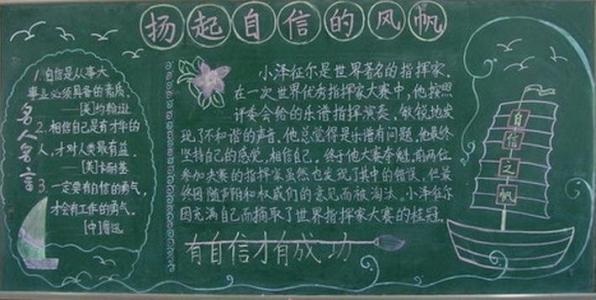 扬起自信的风帆
名人名言
1.自信是从事大
事业必须具备的素质
——[英]约翰逊
2.相信自己是有才华的
人,才对人类最有益.
——[美]卡耐基
3.一定要有自信的勇气,
才会有工作的勇气.
[中]鲁迅
小泽征尔是世界著名的指挥家,
在一次世界优秀指挥家大赛中,他按照
评委会给的乐谱指挥演奏,敏锐地发
现了不和谐的声音.他总觉得是乐谱有问题.他最终
坚持自己的感觉,相信自己.终于他大赛夺魁.前两位
参加决赛的指挥家虽然也发现了其中的错误,但最
终因随声附和权威们的意见而被淘汰.小泽征尔
因充满自己而摘取了世界指挥家大赛的桂冠.
有自信才有成功
自信之帆